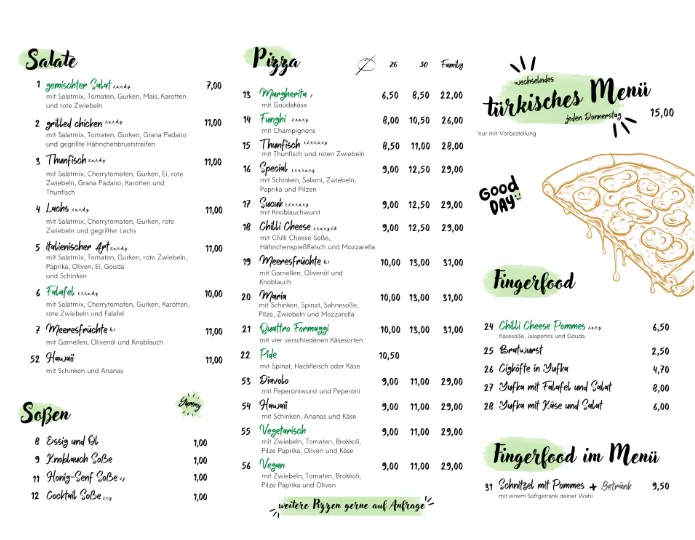 Salate
1 gemischter Salat
7,00
mit Salatmix, Tomaten, Gurken, Mais, Karotten
und rote Zwiebeln
2 grilled chicken
11,00
mit Salatmix, Tomaten, Gurken, Grana Padano
und gegrillte Hähnchenbruststreifen
3 Thunfisch
11,00
mit Salatmix, Cherrytomaten, Gurken, Ei, rote
Zwiebeln, Grana Padano, Karotten und
Thunfisch
4 Lachs
11,00
mit Salatmix, Cherrytomaten, Gurken, rote
Zwiebeln und gegrillter Lachs
5 italienischer Art
11,00
mit Salatmix, Tomaten, Gurken, rote Zwiebeln,
Paprika, Oliven, Ei, Gouda
und Schinken
6 Falafel
10,00
mit Salatmix, Cherrytomaten, Gurken, Karotten,
rote Zwiebeln und Falafel
7 Meeresfrüchte
11,00
mit Garnellen, Olivenöl und Knoblauch
52 Hawaii
11,00
mit Schinken und Ananas
Yummy
Soßen
8 Essig und Öl 1,00
9 Knoblauch Soße 1,00
11 Honig-Senf Soße 1,00
12 Cocktail Soße 1,00
Pizza
26 30 Family
13 Margherita 6,50 8,50 22,00
mit Goudakäse
14 Funghi 8,00 10,50 26,00
mit Champignons
15 Thunfisch 8,50 11,00 28,00
mit Thunfisch und roten Zwiebeln
16 Special 9,00 12,50 29,00
mit Schinken, Salami, Zwiebeln,
Paprika und Pilzen
17 Sucuk 9,00 12,50 29,00
mit Knoblauchwurst
18 Chilli Cheese 9,00 12,50 29,00
mit Chilli Cheese Soße,
Hähnchenspießfleisch und Mozzarella
19 Meeresfrüchte 10,00 13,00 31,00
mit Garnellen, Olivenöl und
Knoblauch
20 Maria 10,00 13,00 31,00
mit Schinken, Spinat, Sahnesoße,
Pilze, Zwiebeln und Mozzarella
21 Quattro Formaggi 10,00 13,00 31,00
mit vier verschiedenen Käsesorten
22 Pide 10,50
mit Spinat, Hackfleisch oder Käse
53 Diavolo 9,00 11,00 29,00
mit Peperoniwurst und Peperoni
54 Hawaii 9,00 11,00 29,00
mit Schinken, Ananas und Käse
55 Vegetarisch 9,00 11,00 29,00
mit Zwiebeln, Tomaten, Brokkoli,
Pilze Paprika, Oliven und Käse
56 Vegan 9,00 11,00 29,00
mit Zwiebeln, Tomaten, Brokkoli,
Pilze Paprika und Oliven
weitere Pizzen gerne auf Anfrage
wechselndes
türkisches Menü
jeden Donnerstag
15,00
nur mit Vorbestellung
GOOD
DAY
Fingerfood
24 Chilli Cheese Pommes 6,50
Käsesoße, Jalapenos und Gouda
25 Bratwurst 2,50
26 Cigköfte in Yufka 4,70
27 Yufka mit Falafel und Salat 8,00
28 Yufka mit Käse und Salat 6,00
Fingerfood im Menü
31 Schnitzel mit Pommes + Getränk 9,50
mit einem Softgetränk deiner Wahl